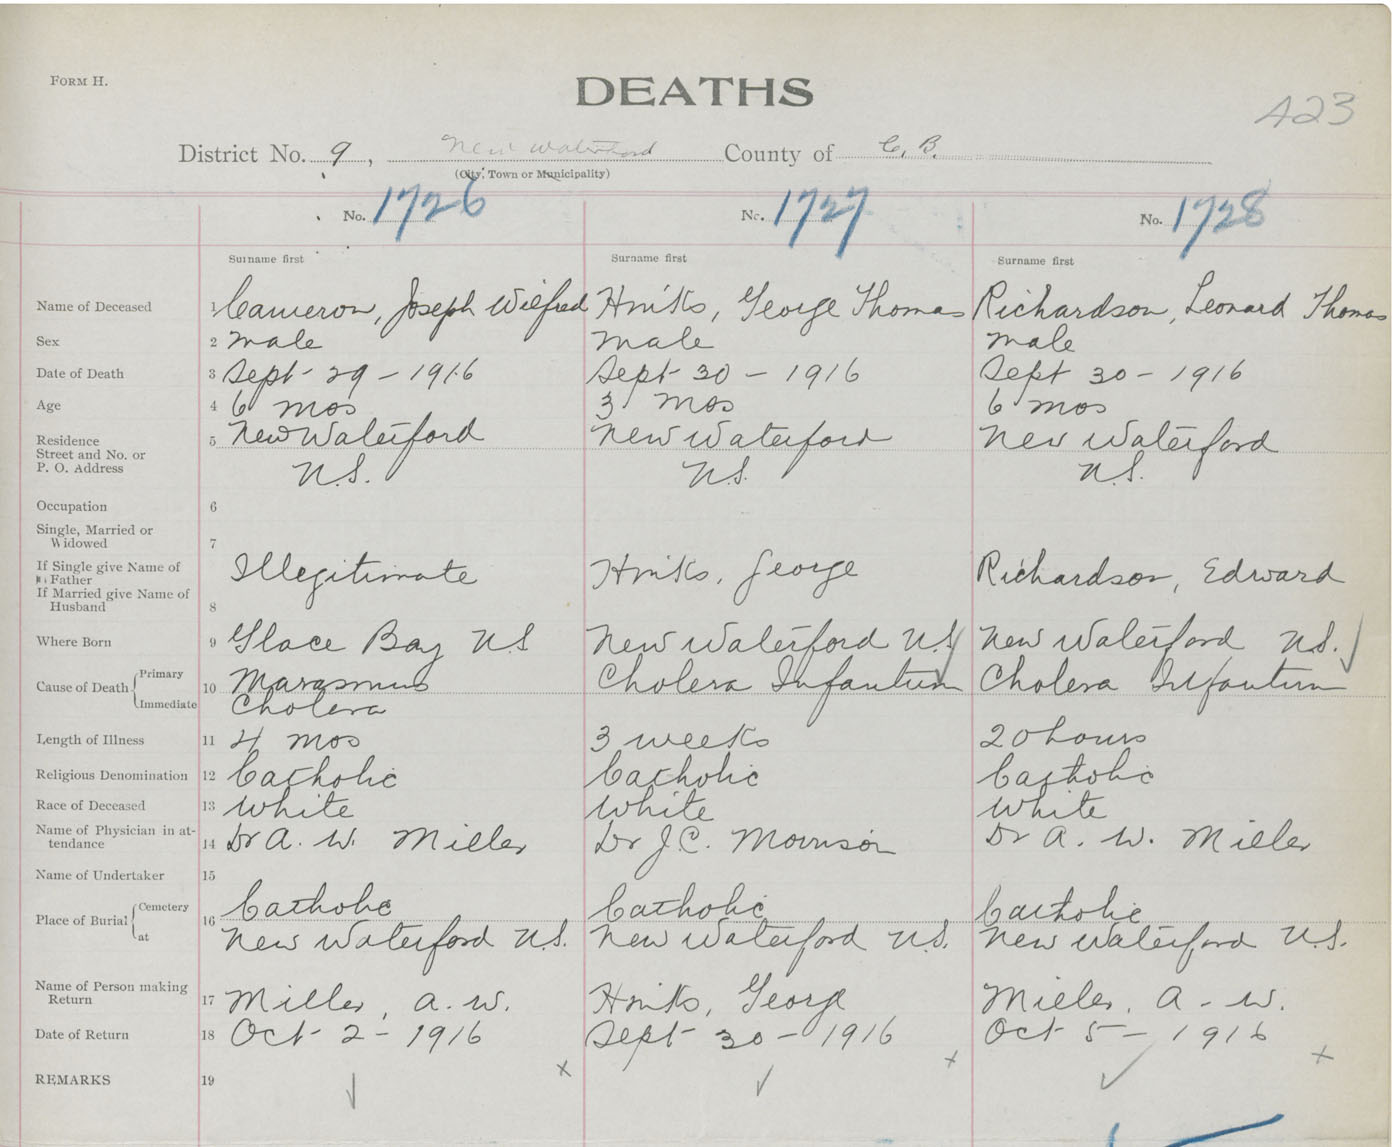 FORM H.
DEATHS
A23
District No. 9, New Waterford County of C.B.
(City, Town or Municipality)
No. 1726 No. 1727 No. 1728
Surname first Surname first Surname first
Name of Deceased 1 Cameron, Joseph Wilfred Hinks, George Thomas Richardson, Leonard Thomas
Sex 2 male male male
Date of Death 3 Sept 29 - 1916 Sept 30 - 1916 Sept 30 - 1916
Age 4 6 mos 3 mos 6 mos
Residence 5 New Waterford New Waterford New Waterford
Street and No. or
P. O. Address N.S. N.S. N.S.
Occupation 6
Single, Married or
Widowed 7
If Single give Name of
Father Illegitimate Hinks, George Richardson, Edward
If Married give Name of
Husband 8
Where Born 9 Glace Bay N S New Waterford N.S New Waterford N.S.
Cause of Death Primary 10 Marasmus Cholera Infantum Cholera Infantum
Immediate Cholera
Length of Illness 11 4 mos 3 weeks 20 hours
Religious Denomination 12 Catholic Catholic Catholic
Race of Deceased 13 White White White
Name of Physician in at-
tendance 14 Dr A. W. Miller Dr J.C. Morrison Dr A. W. Miller
Name of Undertaker 15
Place of Burial Cemetery 16 Catholic Catholic Catholic
at New Waterford N.S. New Waterford N.S. New Waterford N.S.
Name of Person making
Return 17 Miller, A. W. Hinks, George Miller, A - W.
Date of Return 18 Oct 2 - 1916 Sept 30 - 1916 Oct 5 - 1916
REMARKS 19